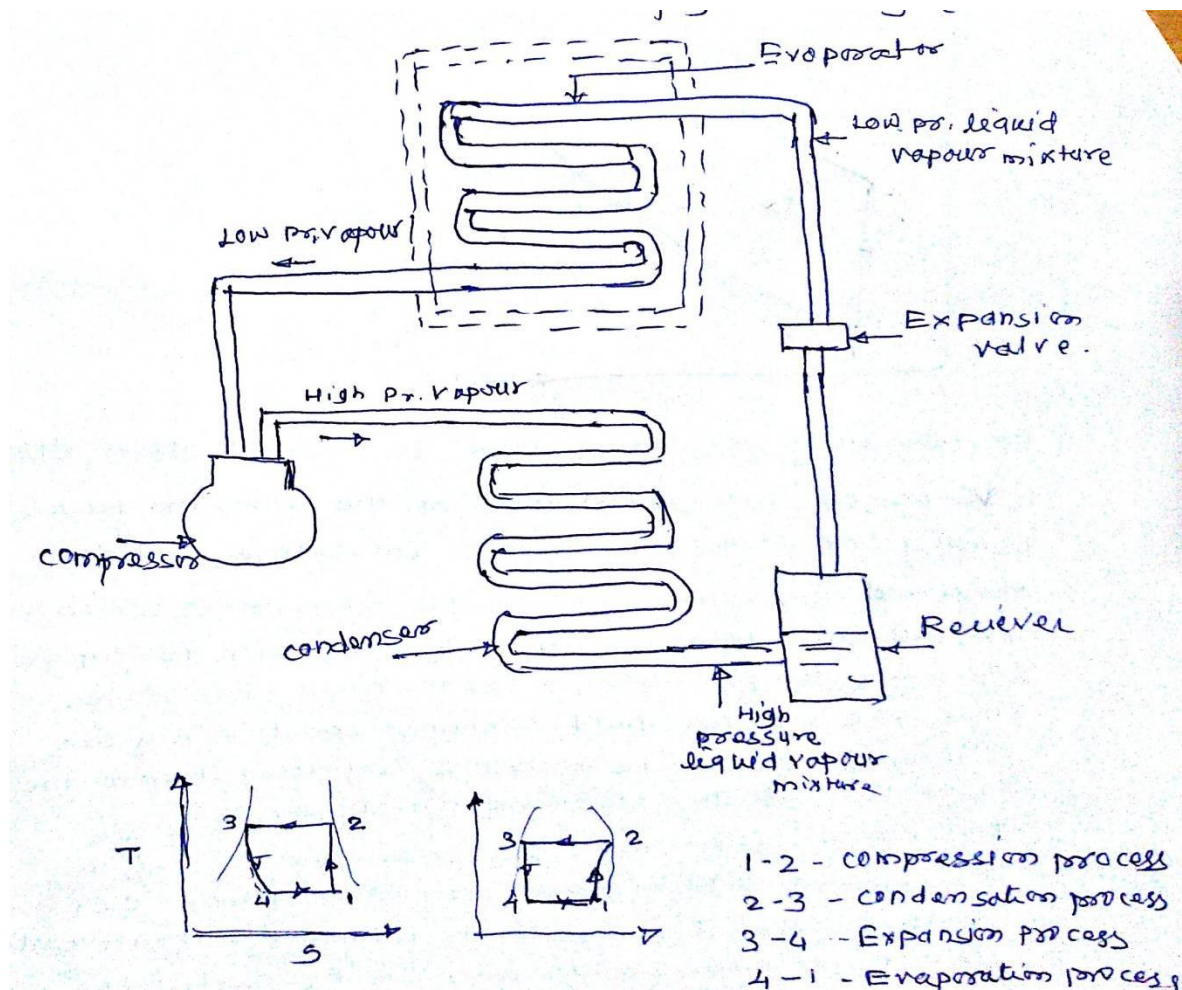 Evaporator
Low pr. liquid
vapour mixture
Low Pr. vapour
Expansion
valve.
High Pr. vapour
compressor
condenser
Reciever
High
pressure
liquid vapour
mixture
T
3
2
4
1
S
3
2
4
1
1-2 - compression process
2-3 - condensation process
3-4 - Expansion process
4-1 - Evaporation process